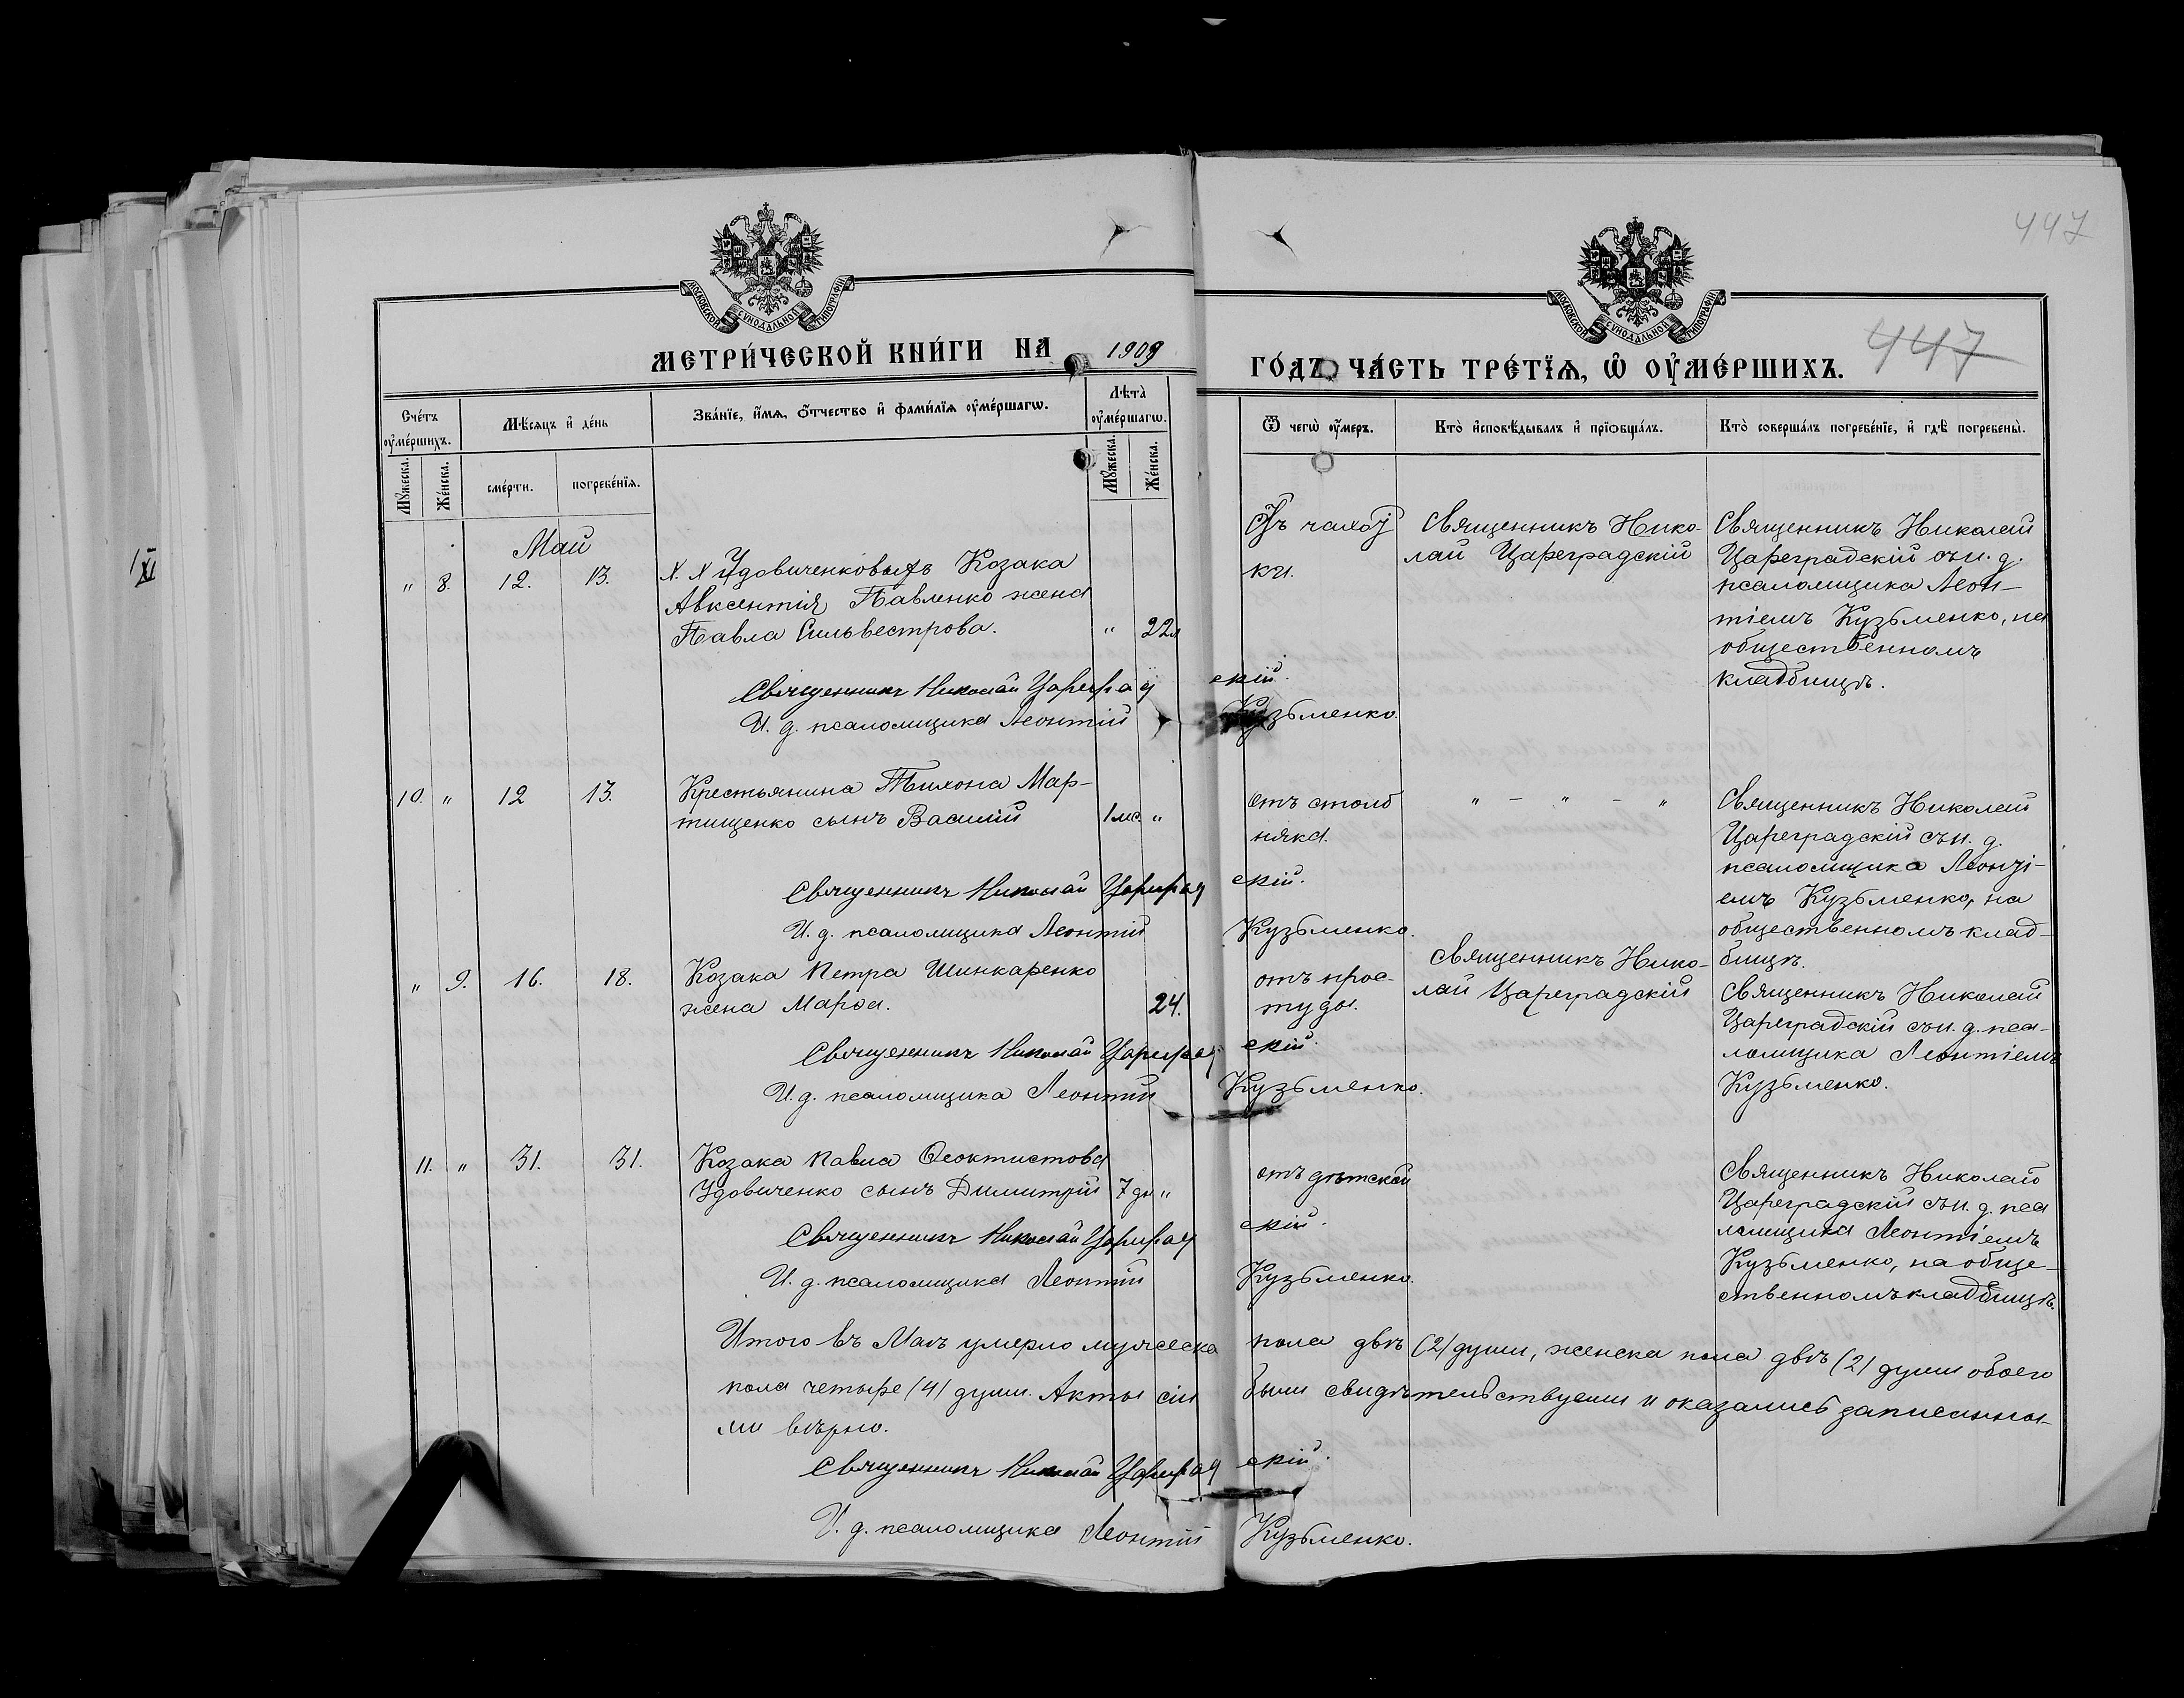 447
МОСКОВСКОЙ СѴНОДАЛЬНОЙ ТИПОГРАФІИ
МОСКОВСКОЙ СѴНОДАЛЬНОЙ ТИПОГРАФІИ
МЕТРИ́ЧЕСКОЙ КНИ́ГИ НА 1909
ГО́ДЪ ЧА́СТЬ ТРЕ́ТЇѦ, Ѡ҆ ОУ҆МЕ́РШИХЪ. 447
Сче́тъ оу҆ме́ршихъ.
Мѣ́сѧцъ и҆ де́нь
Зва́нїе, и҆́мѧ, ѻ҆́тчество и҆ фами́лїѧ оу҆ме́ршагѡ.
Лѣ́та оу҆ме́ршагѡ.
Ѿ чегѡ̀ оу҆́меръ.
Кто̀ и҆сповѣ́дывалъ и҆ прїѻбща́лъ.
Кто̀ соверша́лъ погребе́нїе, и҆ гдѣ̀ погребены̀.
Мꙋ́жеска.
Же́нска.
сме́рти.
погребе́нїѧ.
Мꙋ́жеска.
Же́нска.
Май
" 8. 12. 13.
Х. Х Удовиченковыхъ Козака
Авксентія Павленко жена
Павла Сильвестрова. " 22л
Отъ чахот
ки.
Священникъ Нико-
лай Цареградскій
Священникъ Николай
Цареградскій съ и. д.
псаломщика Леон-
тіемъ Кузьменко, на
общественномъ
кладбищѣ.
Священникъ Николай Цареградскій.
И. д. псаломщика Леонтій Кузьменко.
10. " 12 13.
Крестьянина Тихона Мар-
тищенко сынъ Василій 1 мс. "
отъ столб
няка.
" – " – "
Священникъ Николай
Цареградскій съ и. д.
псаломщика Леонті-
емъ Кузьменко, на
общественномъ клад-
бищѣ.
Священникъ Николай Цареградскій.
И. д. псаломщика Леонтій Кузьменко.
" 9. 16. 18.
Козака Петра Шинкаренко
жена Марѳа. 24.
отъ прос-
туды.
Священникъ Нико-
лай Цареградскій
Священникъ Николай
Цареградскій съ и. д. пса-
ломщика Леонтіемъ
Кузьменко.
Священникъ Николай Цареградскій.
И. д. псаломщика Леонтій Кузьменко.
11. " 31. 31.
Козака Павла Ѳеоктистова
Удовиченко сынъ Димитрій 7 дн "
отъ дѣтской
Священникъ Николай
Цареградскій съ и. д. пса
ломщика Леонтіемъ
Кузьменко, на обще-
ственномъ кладбищѣ.
Священникъ Николай Цареградскій.
И. д. псаломщика Леонтій Кузьменко.
Итого въ Маѣ умерло мужеска пола двѣ (2) души, женска пола двѣ (2) души обоего
пола четыре (4) души. Акты сіи были свидѣтельствуемы и оказались записанны-
ми вѣрно.
Священникъ Николай Цареградскій.
И. д. псаломщика Леонтій Кузьменко.